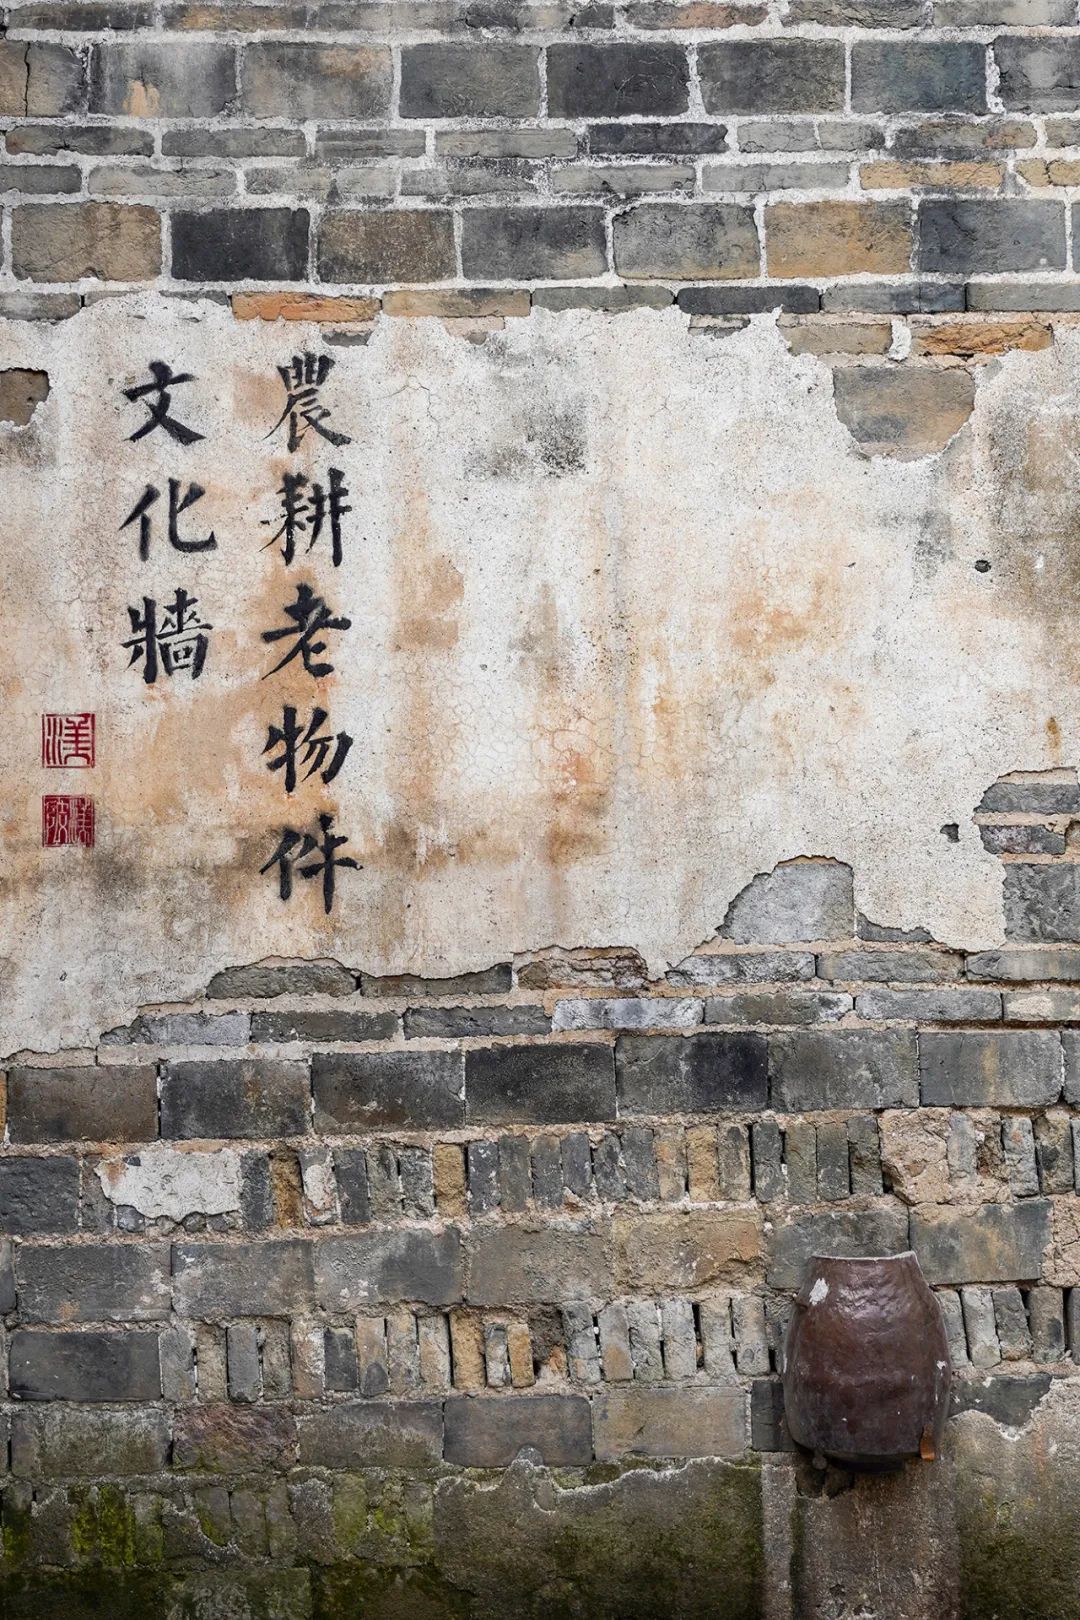 農耕老物件
文化牆